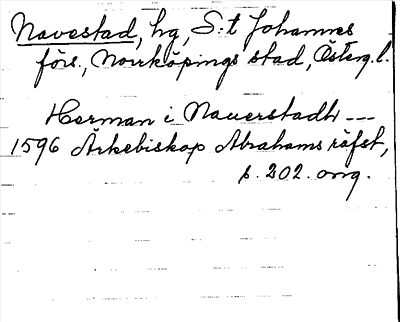 Navestad, hg, S:t Johannes
förs., Norrköpings stad, Österg.l.
Herman i Nauerstadh ---
1596 Ärkebiskop Abrahams räfst,
s. 202. orig.